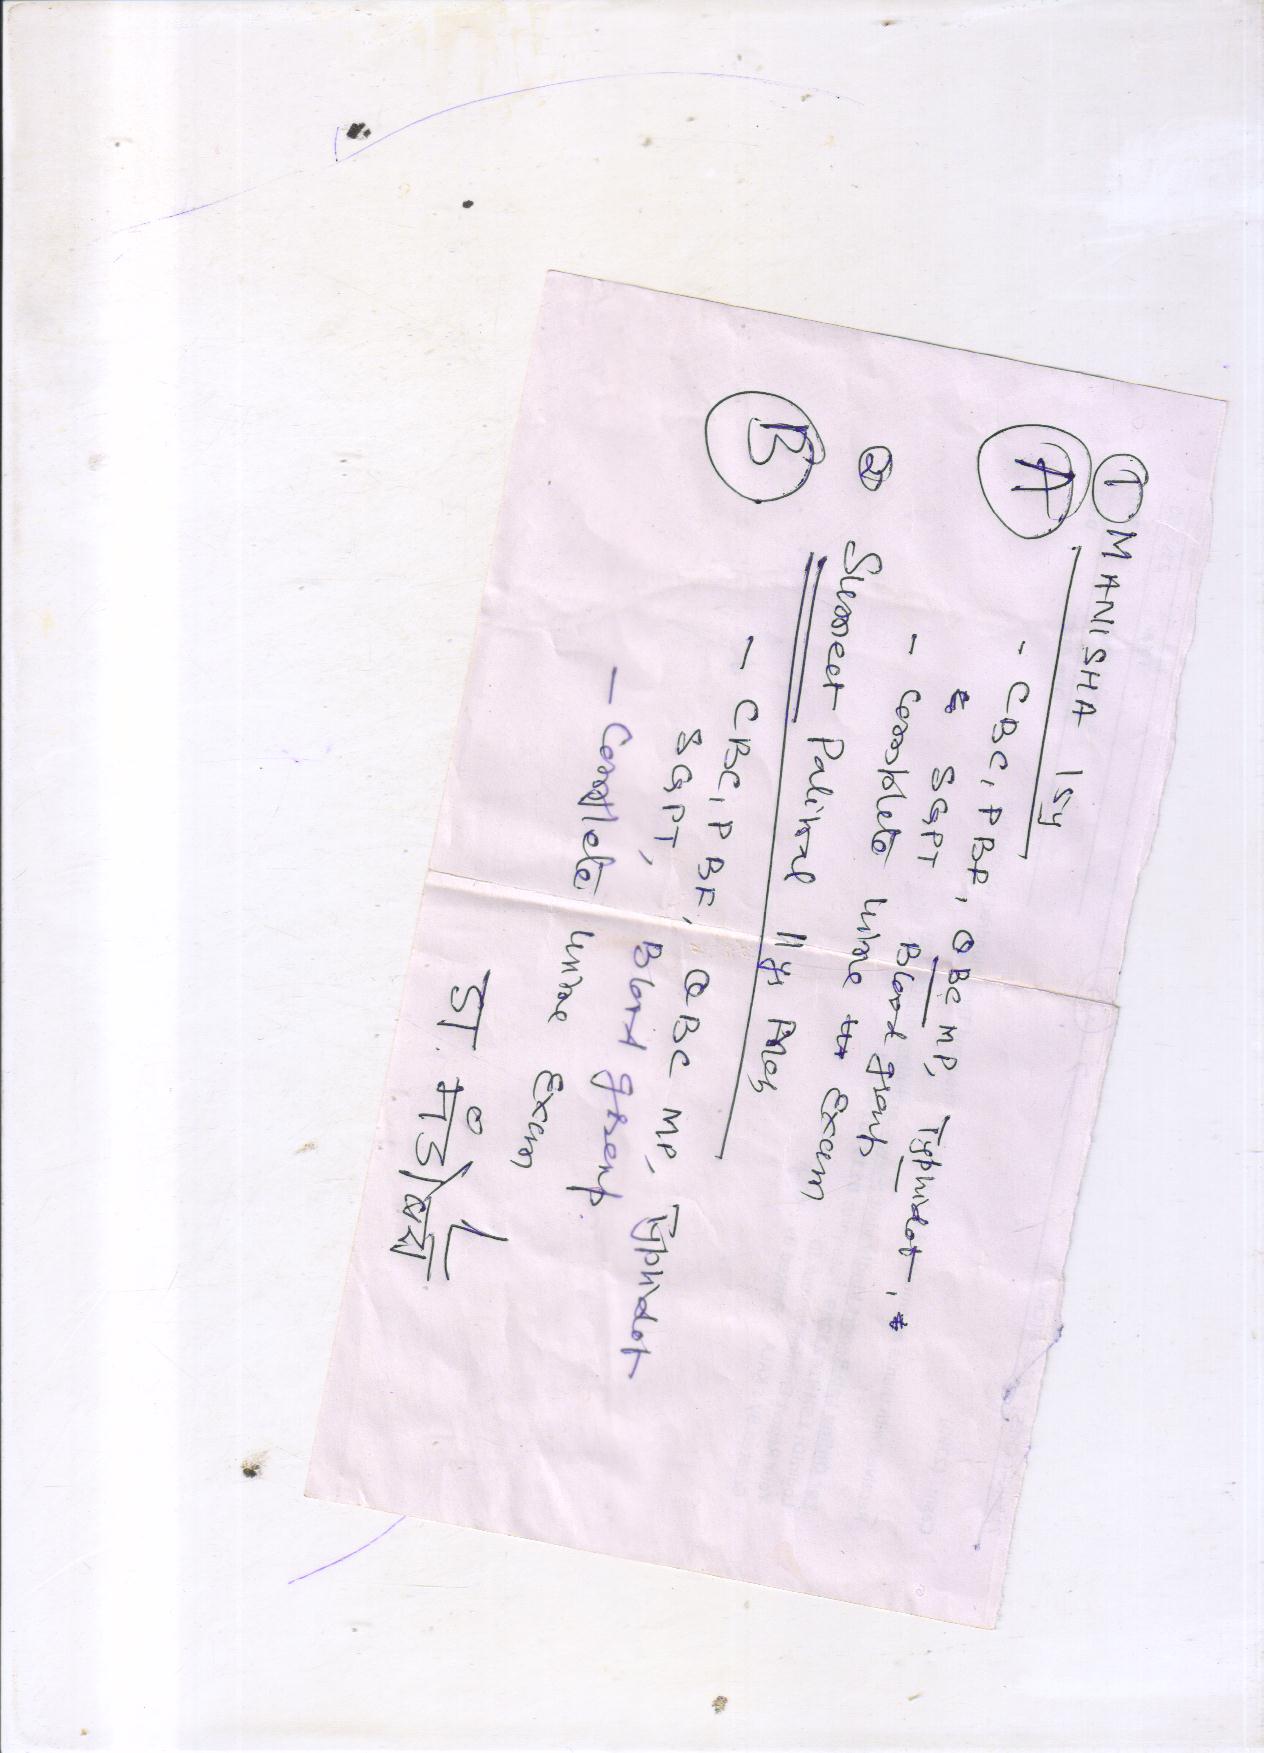 ① MANISHA 15y
Ⓐ
- CBC, PBF, QBC MP, Typhidot,
SGPT Blood group
- Complete Urine Exam
② Sumeet Paliwal 11 yrs
Ⓑ
- CBC, PBF, QBC MP, Typhidot
SGPT, Blood group.
- Complete Urine Exam